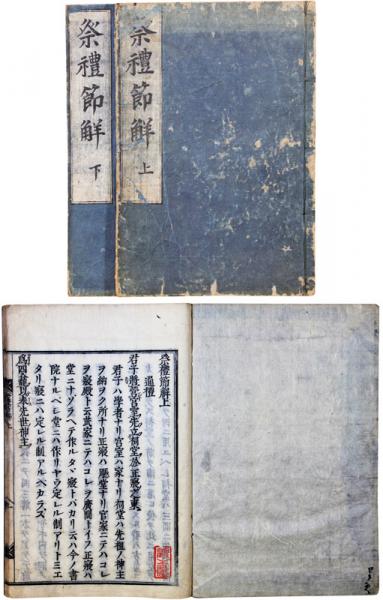 祭禮節解 上
祭禮節解 下
祭禮節解上
通禮
君子將營宮室先立祠堂於正寢之東
君子ハ學者ナリ宮室ハ家ナリ祠堂ハ先祖ノ神主
ヲ納ヲク所ナリ正寢ハ聽堂ナリ官家ニテハコレ
ヲ寢殿ト云武家ニテハコレヲ廣間トイフ正寢ハ
堂ニナゾラヘテ作ルタヾ寢トバカリ云ハ今ノ書
院ナルベシ堂ニハ作リヤウ定レル制アリトミエ
タリ寢ニハ定レル制アルベカラズ
爲四龕以奉先世神主